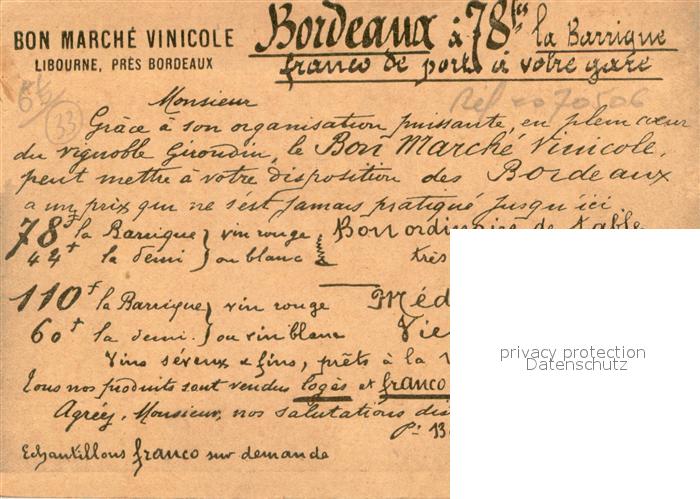 BON MARCHÉ VINICOLE
LIBOURNE, PRÈS BORDEAUX
Bordeaux à 78frs la Barrique
franco de port à votre gare
33
Réf 70506
Monsieur
Grâce à son organisation puissante, en plein cœur
du vignoble Girondin, le Bon Marché Vinicole,
peut mettre à votre disposition des Bordeaux
a un prix qui ne s'est jamais pratiqué jusqu'ici.
78f la Barrique } vin rouge } Bon ordinaire de table
44f la demi } ou blanc } très
110f la Barrique } vin rouge Méd
60f la demi. } ou vin blanc Vie
Vins séveux & fins, prêts à la
Tous nos produits sont vendus logés et franco
Agréez, Monsieur, nos salutations dis
Echantillons franco sur demande
privacy protection
Datenschutz